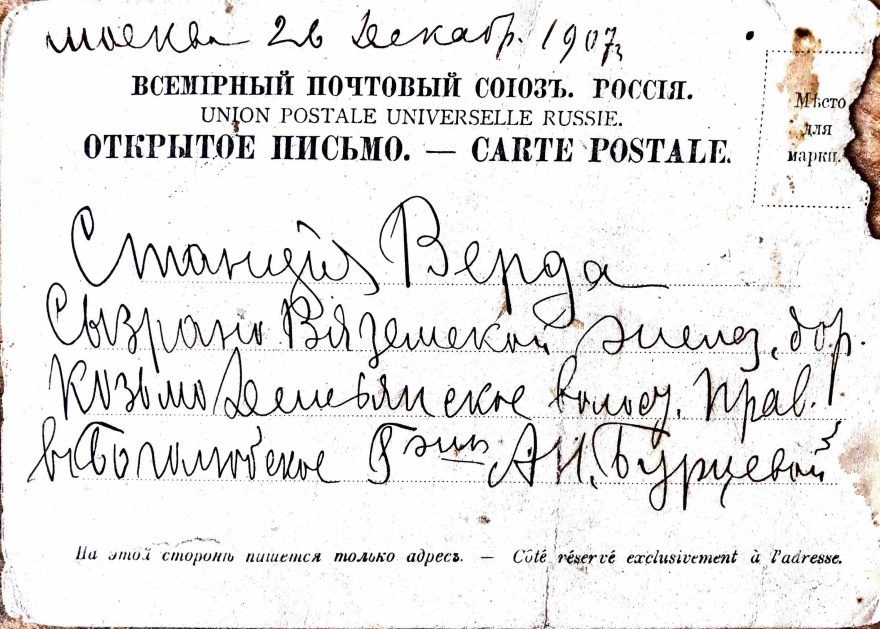 Москва 26 Декабр. 1907
ВСЕМІРНЫЙ ПОЧТОВЫЙ СОЮЗЪ. РОССІЯ.
UNION POSTALE UNIVERSELLE RUSSIE.
ОТКРЫТОЕ ПИСЬМО. — CARTE POSTALE.
Мѣсто
для
марки.
Станція Верда
Сызрано Вяземской желез. дор.
Козьмо Демьянское волост. прав.
въ Боголюбское Г-жѣ А.И. Бурцевой
На этой сторонѣ пишется только адресъ. — Côté réservé exclusivement à l'adresse.